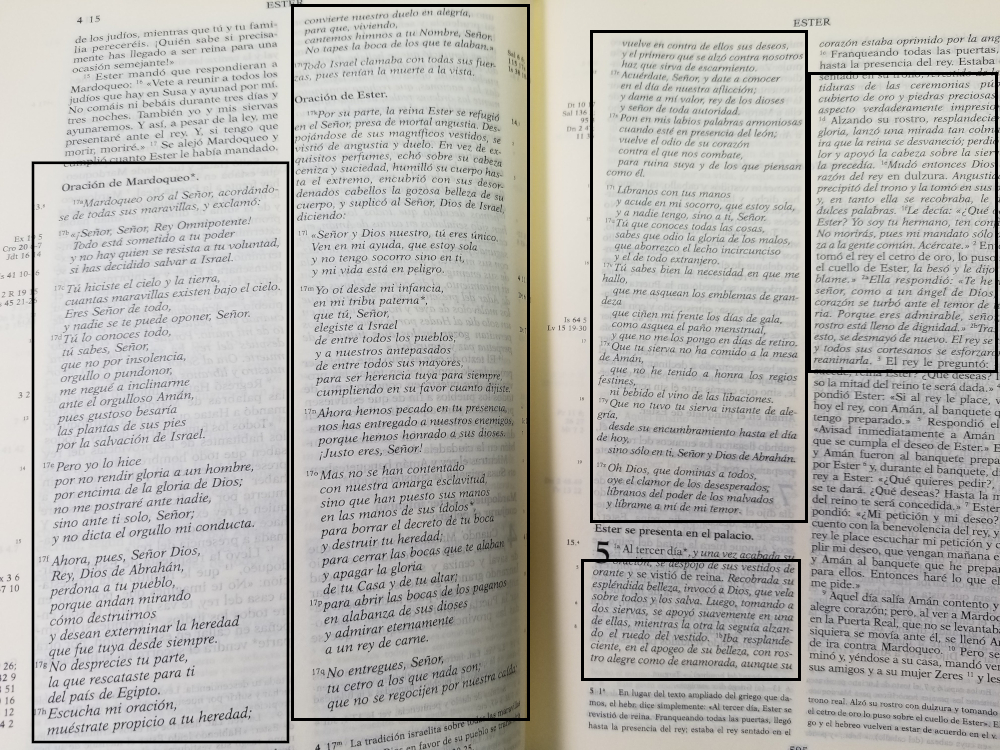 4 15
ESTER
de los judíos, mientras que tú y tu fami-
lia pereceréis. ¡Quién sabe si precisa-
mente has llegado a ser reina para una
ocasión semejante!»
15 Ester mandó que respondieran a
Mardoqueo: 16 «Vete a reunir a todos los
judíos que hay en Susa y ayunad por mí.
No comáis ni bebáis durante tres días y
tres noches. También yo y mis siervas
ayunaremos. Y así, a pesar de la ley, me
presentaré ante el rey. Y, si tengo que
morir, moriré.» 17 Se alejó Mardoqueo y
cumplió cuanto Ester le había mandado.
Oración de Mardoqueo*.
17a Mardoqueo oró al Señor, acordándo-
se de todas sus maravillas, y exclamó:
17b «¡Señor, Señor, Rey Omnipotente!
Todo está sometido a tu poder
y no hay quien se resista a tu voluntad,
si has decidido salvar a Israel.
17c Tú hiciste el cielo y la tierra,
cuantas maravillas existen bajo el cielo.
Eres Señor de todo,
y nadie se te puede oponer, Señor.
17d Tú lo conoces todo,
tú sabes, Señor,
que no por insolencia,
orgullo o pundonor,
me negué a inclinarme
ante el orgulloso Amán,
pues gustoso besaría
las plantas de sus pies
por la salvación de Israel.
17e Pero yo lo hice
por no rendir gloria a un hombre,
por encima de la gloria de Dios;
no me postraré ante nadie,
sino ante ti solo, Señor;
y no dicta el orgullo mi conducta.
17f Ahora, pues, Señor Dios,
Rey, Dios de Abrahán,
perdona a tu pueblo,
porque andan mirando
cómo destruirnos
y desean exterminar la heredad
que fue tuya desde siempre.
17g No desprecies tu parte,
la que rescataste para ti
del país de Egipto.
17h Escucha mi oración,
muéstrate propicio a tu heredad;
convierte nuestro duelo en alegría,
para que, viviendo,
cantemos himnos a tu Nombre, Señor.
No tapes la boca de los que te alaban.»
17i Todo Israel clamaba con todas sus fuer-
zas, pues tenían la muerte a la vista.
Oración de Ester.
17k Por su parte, la reina Ester se refugió
en el Señor, presa de mortal angustia. Des-
pojándose de sus magníficos vestidos, se
vistió de angustia y duelo. En vez de ex-
quisitos perfumes, echó sobre su cabeza
ceniza y suciedad, humilló su cuerpo has-
ta el extremo, encubrió con sus desor-
denados cabellos la gozosa belleza de su
cuerpo, y suplicó al Señor, Dios de Israel,
diciendo:
17l «Señor y Dios nuestro, tú eres único.
Ven en mi ayuda, que estoy sola
y no tengo socorro sino en ti,
y mi vida está en peligro.
17m Yo oí desde mi infancia,
en mi tribu paterna*,
que tú, Señor,
elegiste a Israel
de entre todos los pueblos,
y a nuestros antepasados
de entre todos sus mayores,
para ser herencia tuya para siempre,
cumpliendo en su favor cuanto dijiste.
17n Ahora hemos pecado en tu presencia,
nos has entregado a nuestros enemigos,
porque hemos honrado a sus dioses.
¡Justo eres, Señor!
17o Mas no se han contentado
con nuestra amarga esclavitud,
sino que han puesto sus manos
en las manos de sus ídolos*,
para borrar el decreto de tu boca
y destruir tu heredad;
para cerrar las bocas que te alaban
y apagar la gloria
de tu Casa y de tu altar;
17p para abrir las bocas de los paganos
en alabanza de sus dioses
y admirar eternamente
a un rey de carne.
17q No entregues, Señor,
tu cetro a los que nada son;
que no se regocijen por nuestra caída,
4 17m La tradición israelita sobre todas las
Dios en favor de su pueblo se
ESTER
vuelve en contra de ellos sus deseos,
y el primero que se alzó contra nosotros
haz que sirva de escarmiento.
17r Acuérdate, Señor, y date a conocer
en el día de nuestra aflicción;
y dame a mí valor, rey de los dioses
y señor de toda autoridad.
17s Pon en mis labios palabras armoniosas
cuando esté en presencia del león;
vuelve el odio de su corazón
contra el que nos combate,
para ruina suya y de los que piensan
como él.
17t Líbranos con tus manos
y acude en mi socorro, que estoy sola,
y a nadie tengo, sino a ti, Señor.
17u Tú que conoces todas las cosas,
sabes que odio la gloria de los malos,
que aborrezco el lecho incircunciso
y el de todo extranjero.
Tú sabes bien la necesidad en que me
hallo,
que me asquean los emblemas de gran-
deza
que ciñen mi frente los días de gala,
como asquea el paño menstrual,
y que no me los pongo en días de retiro.
Que tu sierva no ha comido a la mesa
de Amán,
que no he tenido a honra los regios
festines,
ni bebido el vino de las libaciones.
Que no tuvo tu sierva instante de ale-
gría,
desde su encumbramiento hasta el día
de hoy,
sino sólo en ti, Señor y Dios de Abrahán.
Oh Dios, que dominas a todos,
oye el clamor de los desesperados;
líbranos del poder de los malvados
y líbrame a mí de mi temor.
Ester se presenta en el palacio.
5 1a Al tercer día*, y una vez acabada su
oración, se despojó de sus vestidos de
orante y se vistió de reina. Recobrada su
espléndida belleza, invocó a Dios, que vela
sobre todos y los salva. Luego, tomando a
dos siervas, se apoyó suavemente en una
de ellas, mientras la otra la seguía alzan-
do el ruedo del vestido. 1b Iba resplande-
ciente, en el apogeo de su belleza, con ros-
tro alegre como de enamorada, aunque su
5 1* En lugar del texto ampliado del griego que da-
mos, el hebr. dice simplemente: «Al tercer día, Ester se
revistió de reina. Franqueando todas las puertas, llegó
hasta la presencia del rey; estaba el rey sentado en el
corazón estaba oprimido por la ang
Franqueando todas las puertas,
hasta la presencia del rey. Estaba
sentado en su trono, revestido de las
tiduras de las ceremonias pú
cubierto de oro y piedras preciosas
aspecto verdaderamente impresio
Alzando su rostro, resplandecie
gloria, lanzó una mirada tan colm
ira que la reina se desvaneció; perdi
lor y apoyó la cabeza sobre la sier
la precedía. Mudó entonces Dios
razón del rey en dulzura. Angustia
precipitó del trono y la tomó en sus
y, en tanto ella se recobraba, le
dulces palabras. Le decía: «¿Qué
Ester? Yo soy tu hermano, ten con
No morirás, pues mi mandato sólo
za a la gente común. Acércate.» 2 En
tomó el rey el cetro de oro, lo puso
el cuello de Ester, la besó y le dijo
blame.» 2a Ella respondió: «Te he
señor, como a un ángel de Dios
corazón se turbó ante el temor de
ria. Porque eres admirable, señor,
rostro está lleno de dignidad.» 2b Tra
esto, se desmayó de nuevo. El rey se
y todos sus cortesanos se esforzaro
reanimarla. 3 El rey le preguntó:
sucede, reina Ester? ¿Qué deseas?
so la mitad del reino te será dada.»
pondió Ester: «Si al rey le place, v
hoy el rey, con Amán, al banquete q
tengo preparado.» 5 Respondió el
«Avisad inmediatamente a Amán
que se cumpla el deseo de Ester.» E
y Amán fueron al banquete prepa
por Ester 6 y, durante el banquete, di
rey a Ester: «¿Qué quieres pedir?,
se te dará. ¿Qué deseas? Hasta la m
del reino te será concedida.» 7 Ester
pondió: «¿Mi petición y mi deseo?
cuento con la benevolencia del rey, y
rey le place escuchar mi petición y c
plir mi deseo, que vengan mañana e
y Amán al banquete que he prepara
para ellos. Entonces haré lo que el
me pide.»
9 Aquel día salía Amán contento y
alegre corazón; pero, al ver a Mardoc
en la Puerta Real, que no se levantaba
siquiera se movía ante él, se llenó An
de ira contra Mardoqueo. 10 Pero se
minó y, yéndose a su casa, mandó ven
sus amigos y a su mujer Zeres 11 y les
trono real. Alzó su rostro con dulzura y tomando
el cetro de oro lo puso sobre el cuello de Ester». E
go y el hebreo vuelven a estar de acuerdo en el v.